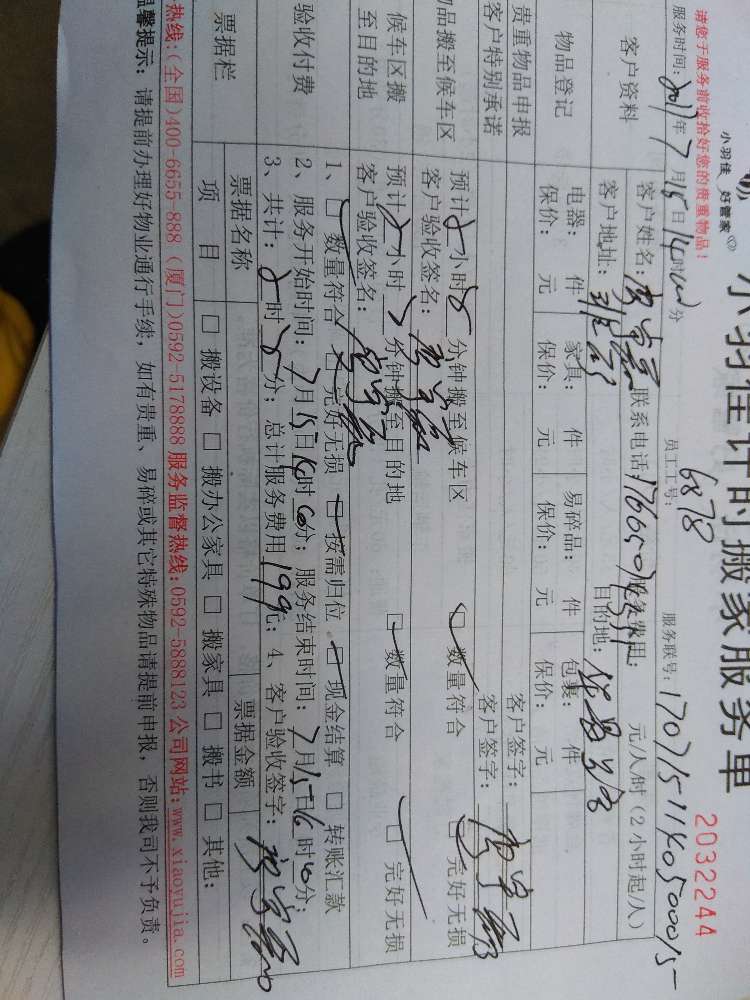 小羽佳 好管家
小羽佳计时搬家服务单
2032244
请您于服务前收拾好您的贵重物品！
员工工号：6878
服务联号：1707151140500015
服务时间：2017年7月15日14时00分
客户资料
客户姓名：
联系电话
服务费用： 元/人/时（2小时起/人）
客户地址：
目的地：
物品登记
电器： 件 家具： 件 易碎品： 件 包裹： 件
保价： 元 保价： 元 保价： 元 保价： 元
贵重物品申报
客户签字：
客户特别承诺
客户签字：
物品搬至候车区
预计 小时 分钟搬至候车区 □ 数量符合 □ 完好无损
客户验收签名：
候车区搬至目的地
预计 小时 分钟搬至目的地 □ 数量符合 □ 完好无损
客户验收签名：
验收付费
1、□ 数量符合 □ 完好无损 □ 按需归位 □ 现金结算 □ 转账汇款
2、服务开始时间：7月15日14时00分；服务结束时间：7月15日16时00分；
3、共计：2时0分；总计服务费用199元；4、客户验收签字：
票据栏
票据名称
票据金额
项 目 □ 搬设备 □ 搬办公家具 □ 搬家具 □ 搬书 □ 其他：
热线：(全国)400-6655-888 (厦门)0592-5178888 服务监督热线：0592-5888123 公司网站：www.xiaoyujia.com
温馨提示：请提前办理好物业通行手续，如有贵重、易碎或其它特殊物品请提前申报，否则我司不予负责。